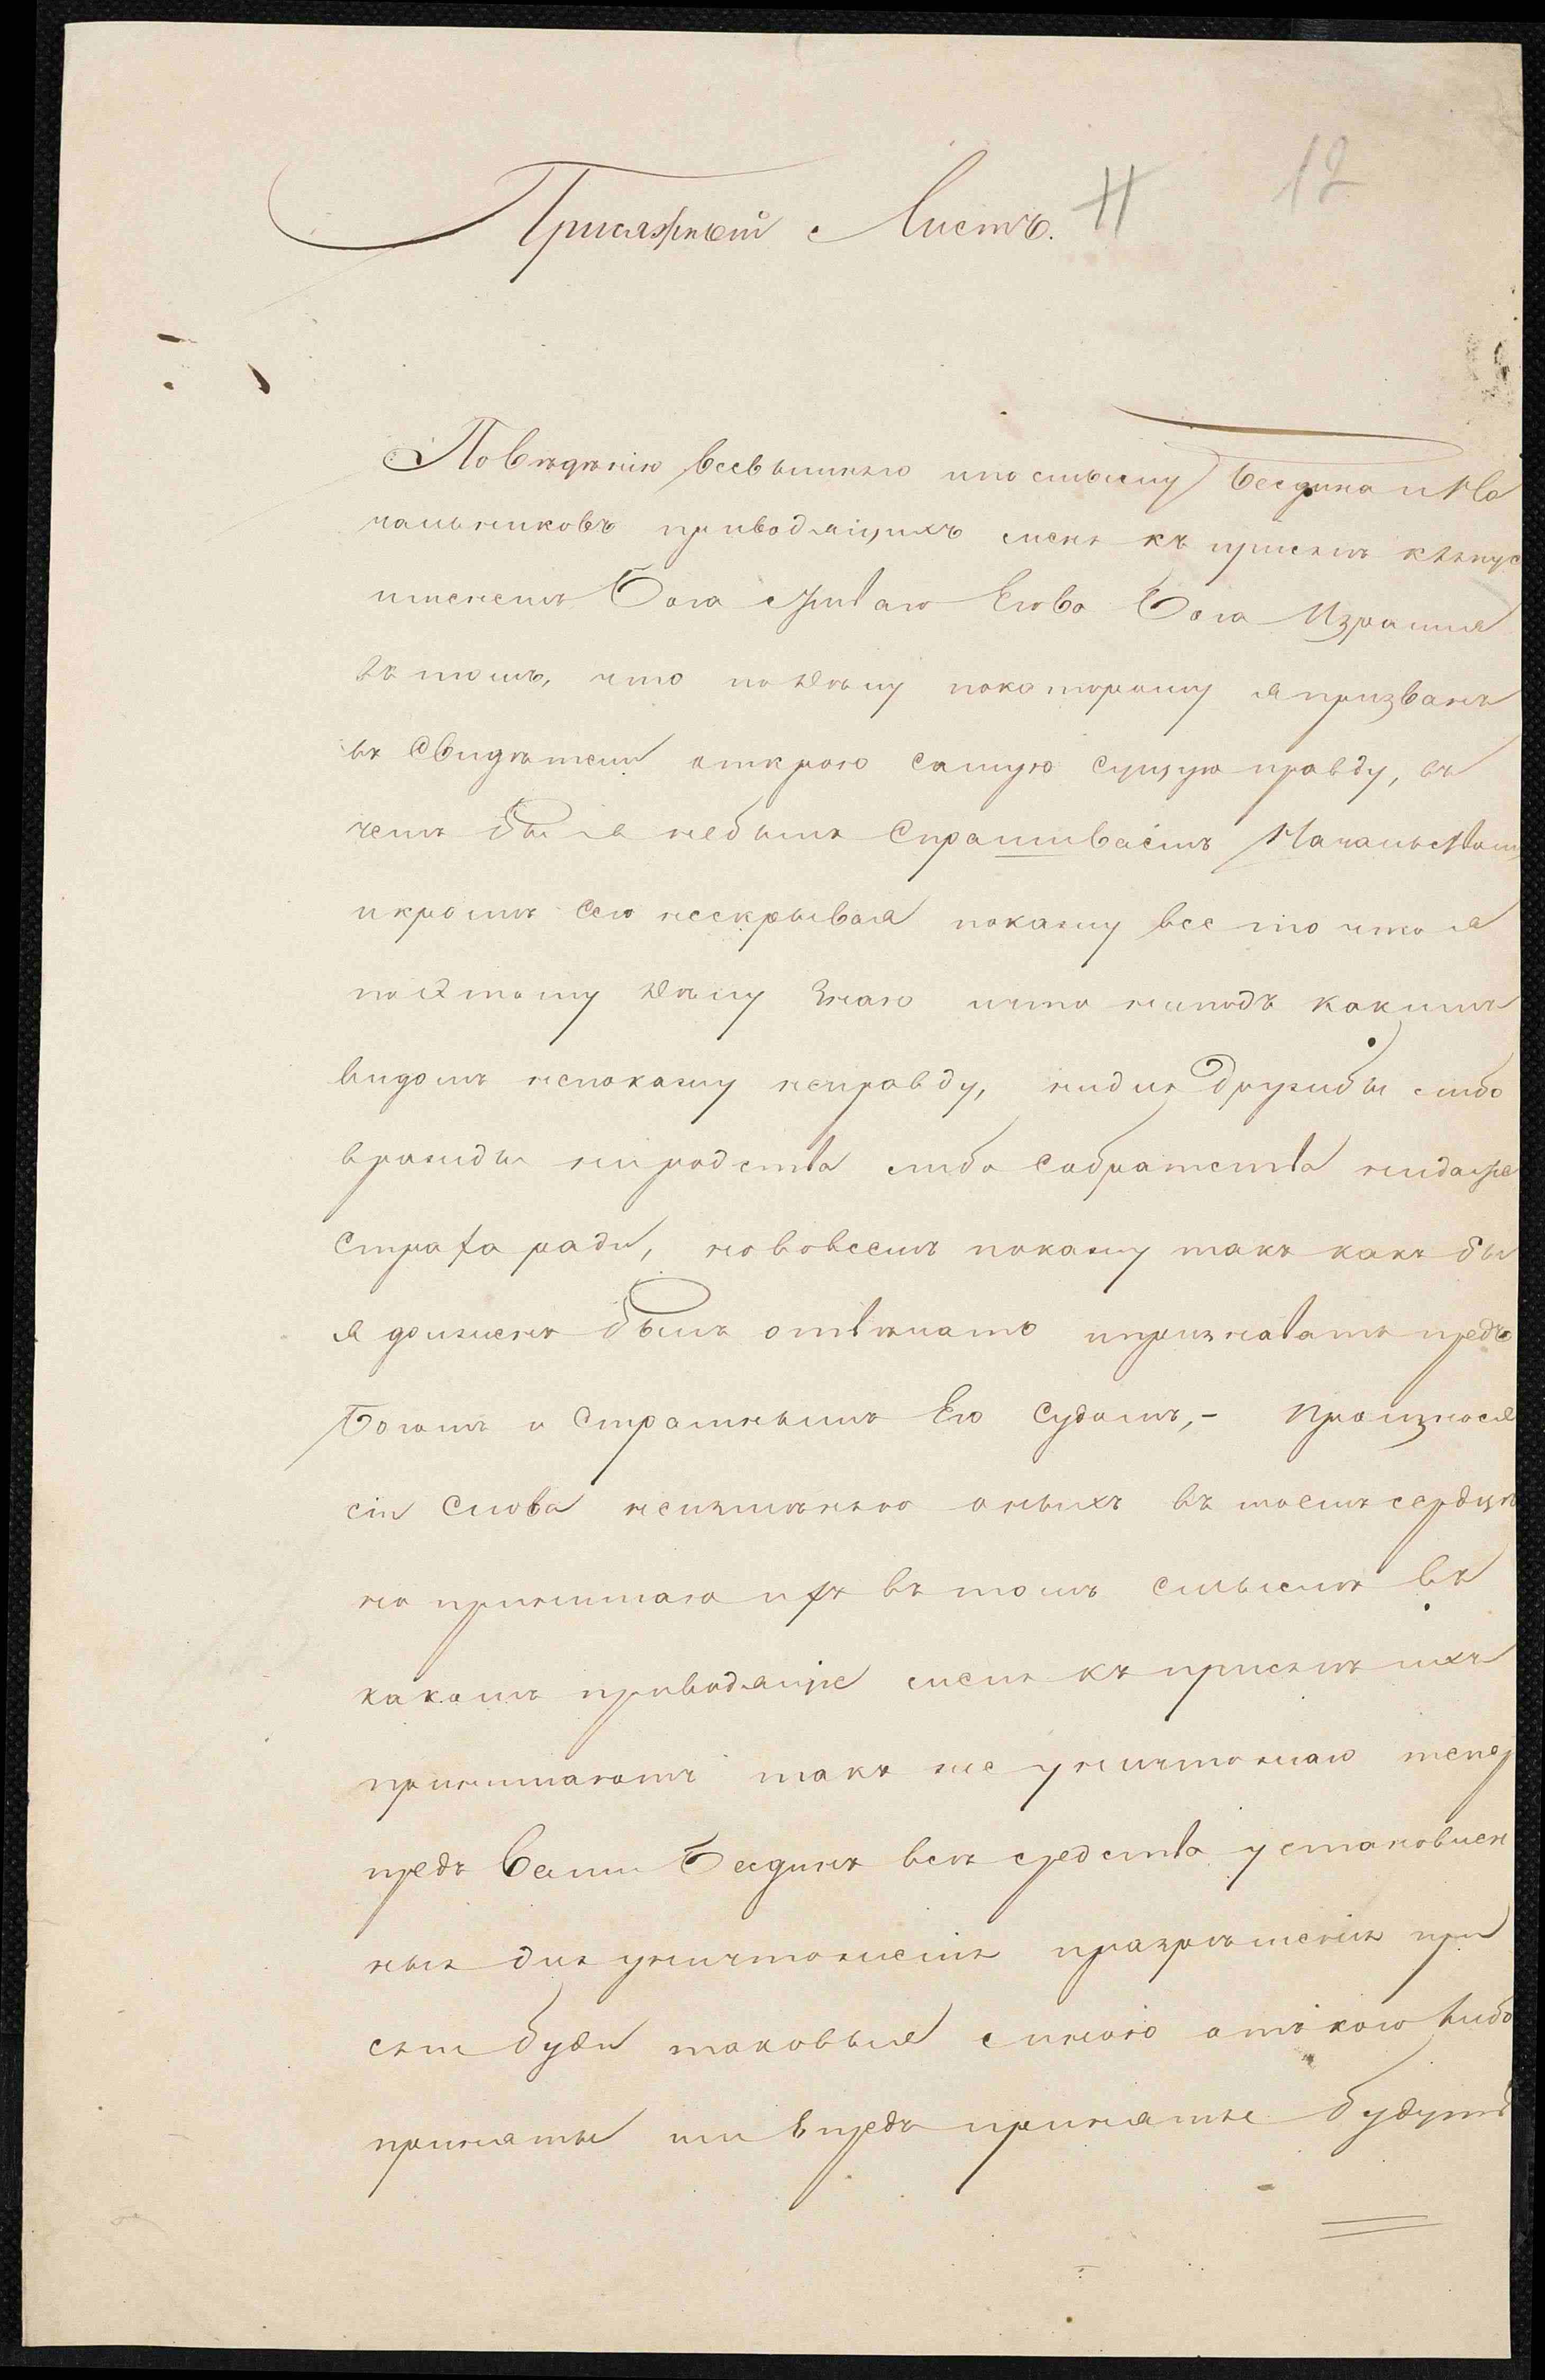 Присяжный Листъ. H 12
Повѣденію всевышняго и по смыслу Бесдина и На
чальниковъ приводящихъ меня къ присягѣ клянус
именемъ Бога живаго Егова Бога Израиля
въ томъ, что по дѣлу по которому я призванъ
въ свидѣтели открою самую сущую правду, въ
чемъ бы я небылъ спрашиваемъ Начальством,
и кромѣ сего нескрывая покажу все то что я
по этому дѣлу знаю и что ни подъ какимъ
видомъ непокажу неправду, ни для дружибы либо
вражды ни родства либо собратства ни даже
страха ради, но вовсемъ покажу такъ какъ бы
я долженъ былъ отвѣчать и признаватъ предъ
Богомъ и Страшнымъ Его Судомъ,- Произнося
сіи слова неизмѣняю оныхъ въ моемъ сердцѣ
но принимаю ихъ въ томъ смыслѣ въ
какомъ приводящіе меня къ присягѣ ихъ
принимаютъ такъ же уничтожаю тепер
предъ Вами Бесдинъ всѣ средства установлен
ныя для уничтоженія и разрѣшенія при
сяги буди таковыя мною отъ кого либо
приняты или впредь приняты будутъ